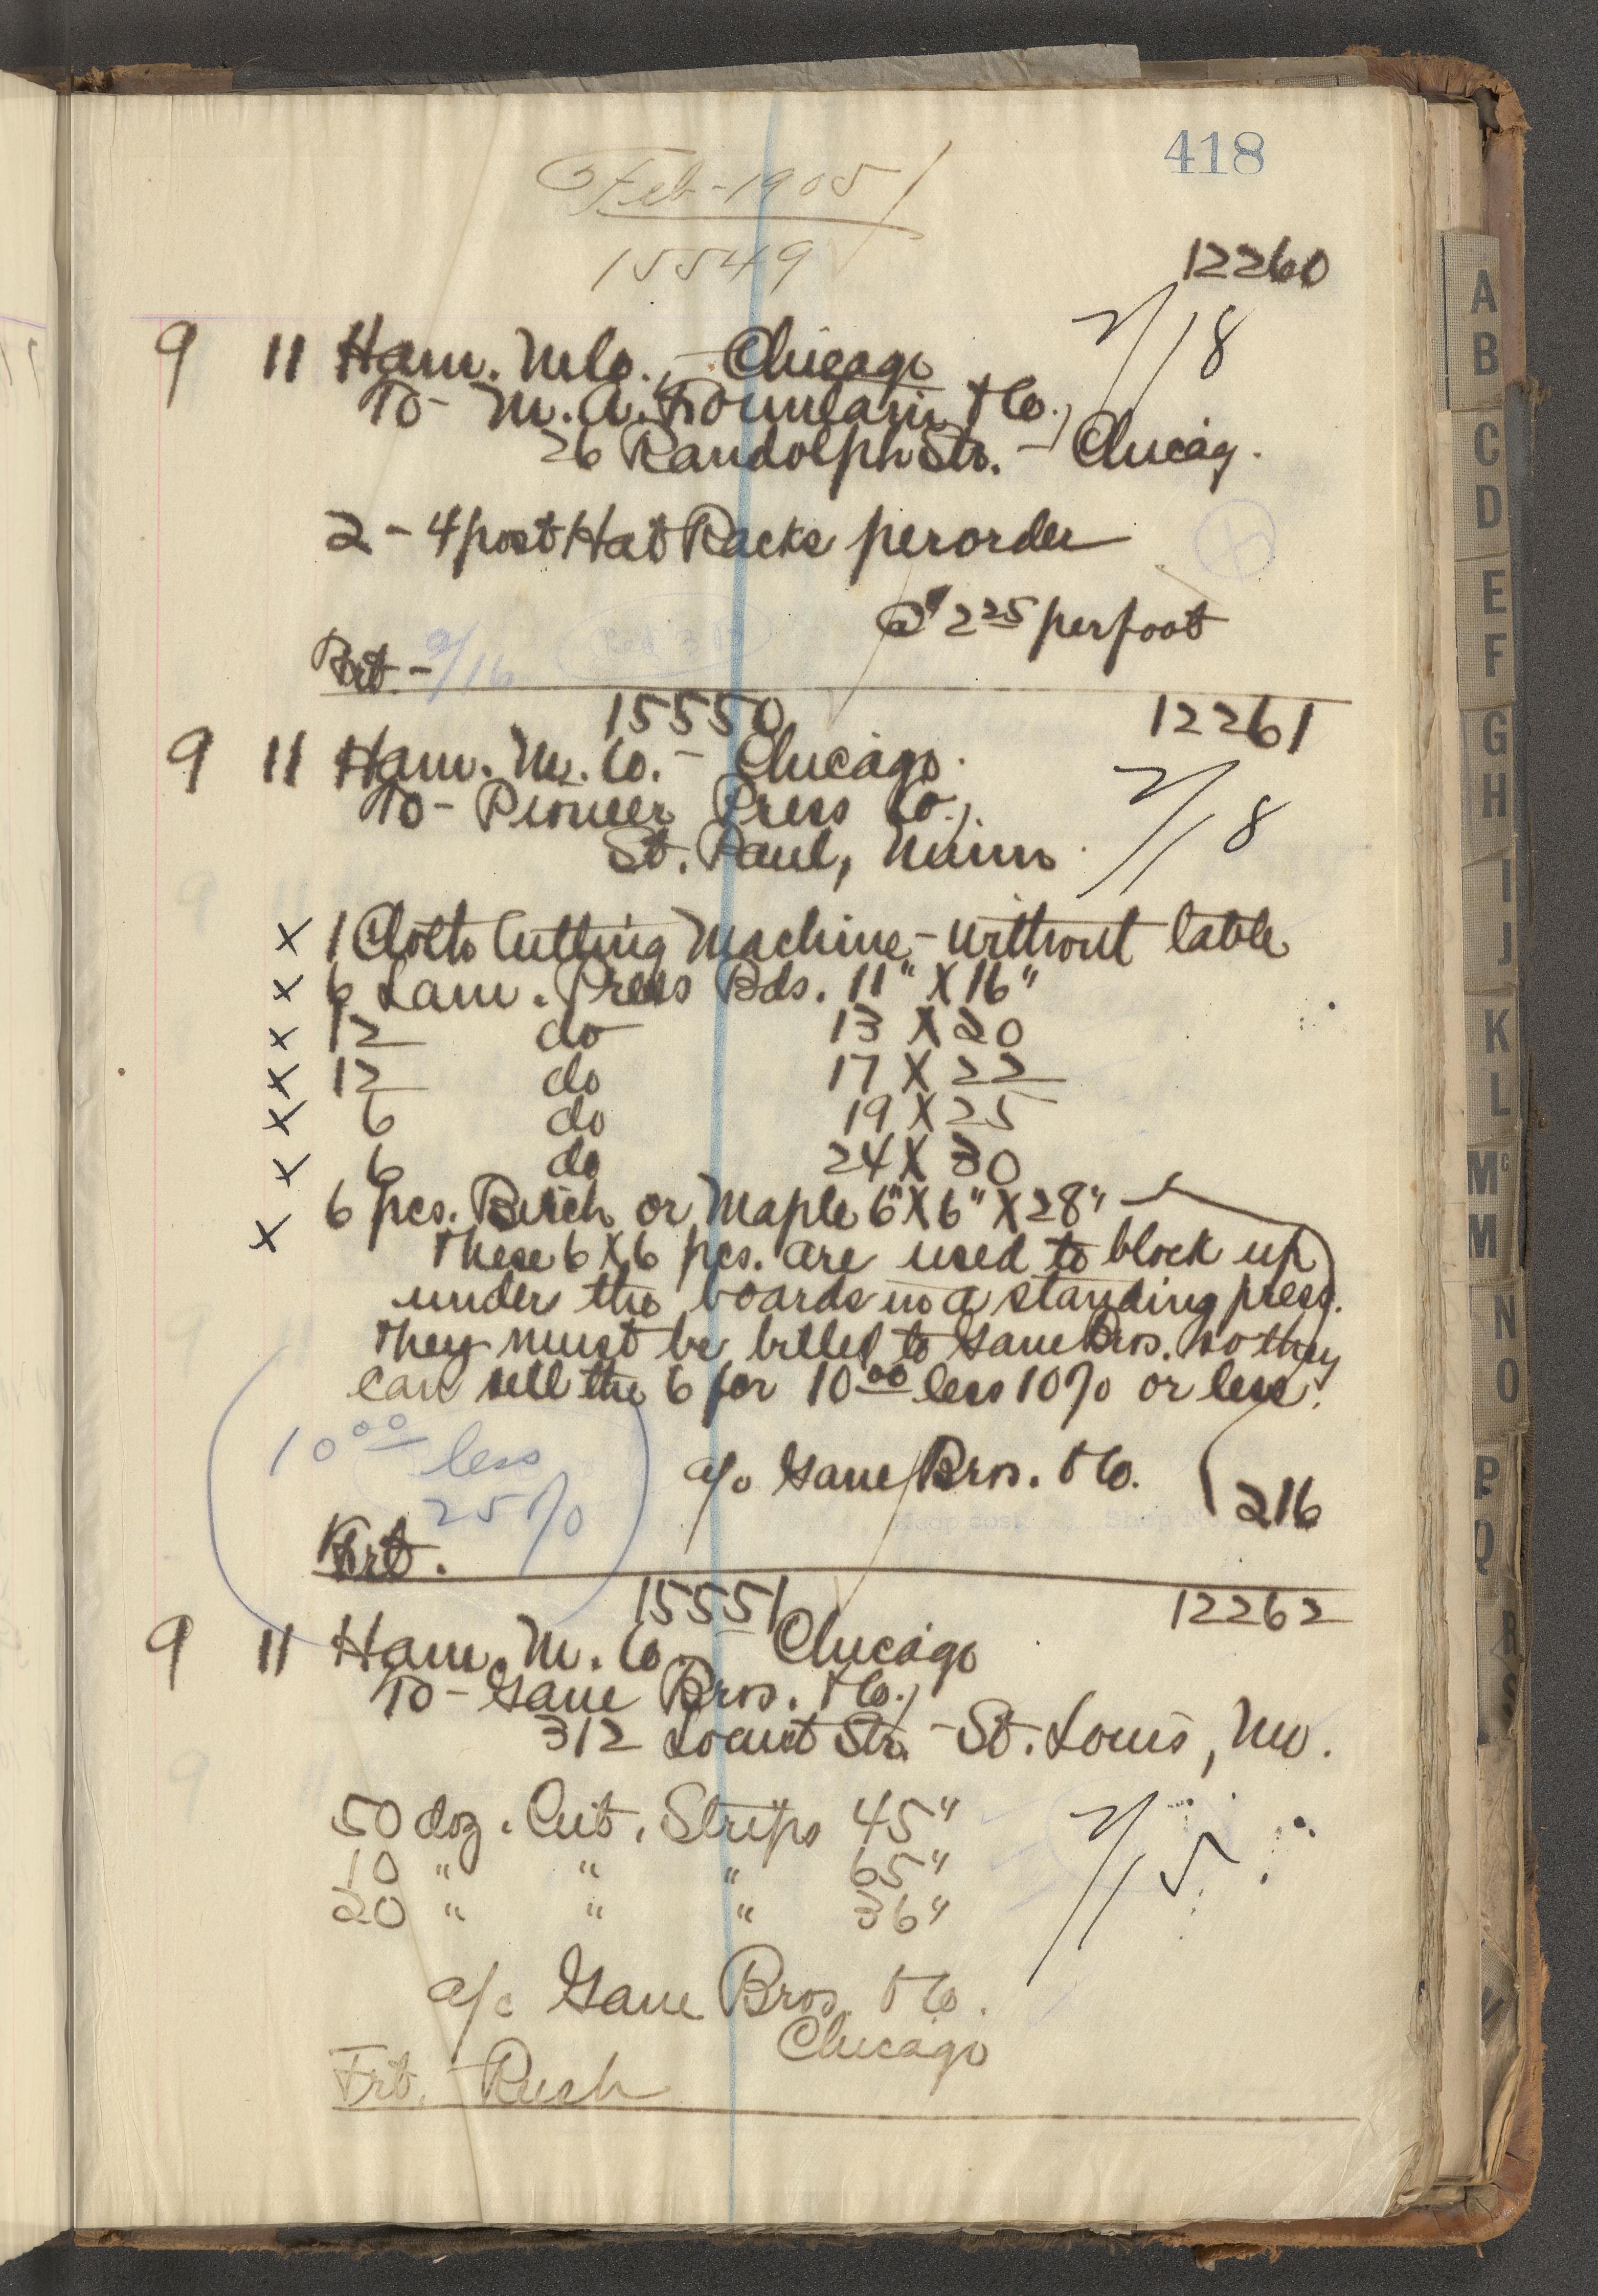 418
Feb-1905
15549
12260
9 11 Ham. M Co., - Chicago
2/18
To- M. A. Fountain & Co.,
26 Randolph Str. - Chicag.
2 - 4 post Hat Racks per order
@ 2 25 per foot
Frt - 2/16
15550 12261
9 11 Ham. M. Co. - Chicago.
To- Pioneer Press Co.,
2/18
St. Paul, Minn
x 1 Cloth Cutting Machine - without table
x 6 Lam. Press Bds. 11" X 16"
x 12 do 13 X 20
x 12 do 17 X 22
x 6 do 19 X 25
x 6 do 24 X 30
x 6 pcs. Birch or Maple 6" X 6" X 28"
These 6 X 6 pcs. are used to block up
under the boards in a standing press.
They must be billed to Gane Bros. so they
can sell the 6 for 10 00 less 10% or less.
10 00 less
25%
a/c Gane Bros. & Co. 216
Frt.
15551 12262
9 11 Ham. M. Co. Chicago
To- Gane Bros. & Co.,
312 Locust Str. - St. Louis, Mo.
50 doz. Cut. Strips 45"
2/15
10 " " " 65"
20 " " " 36"
a/c Gane Bros. & Co.
Chicago
Frt. Rush
A
B
C
D
E
F
G
H
I
J
K
L
Mc
M
N
O
P
Q
R
S